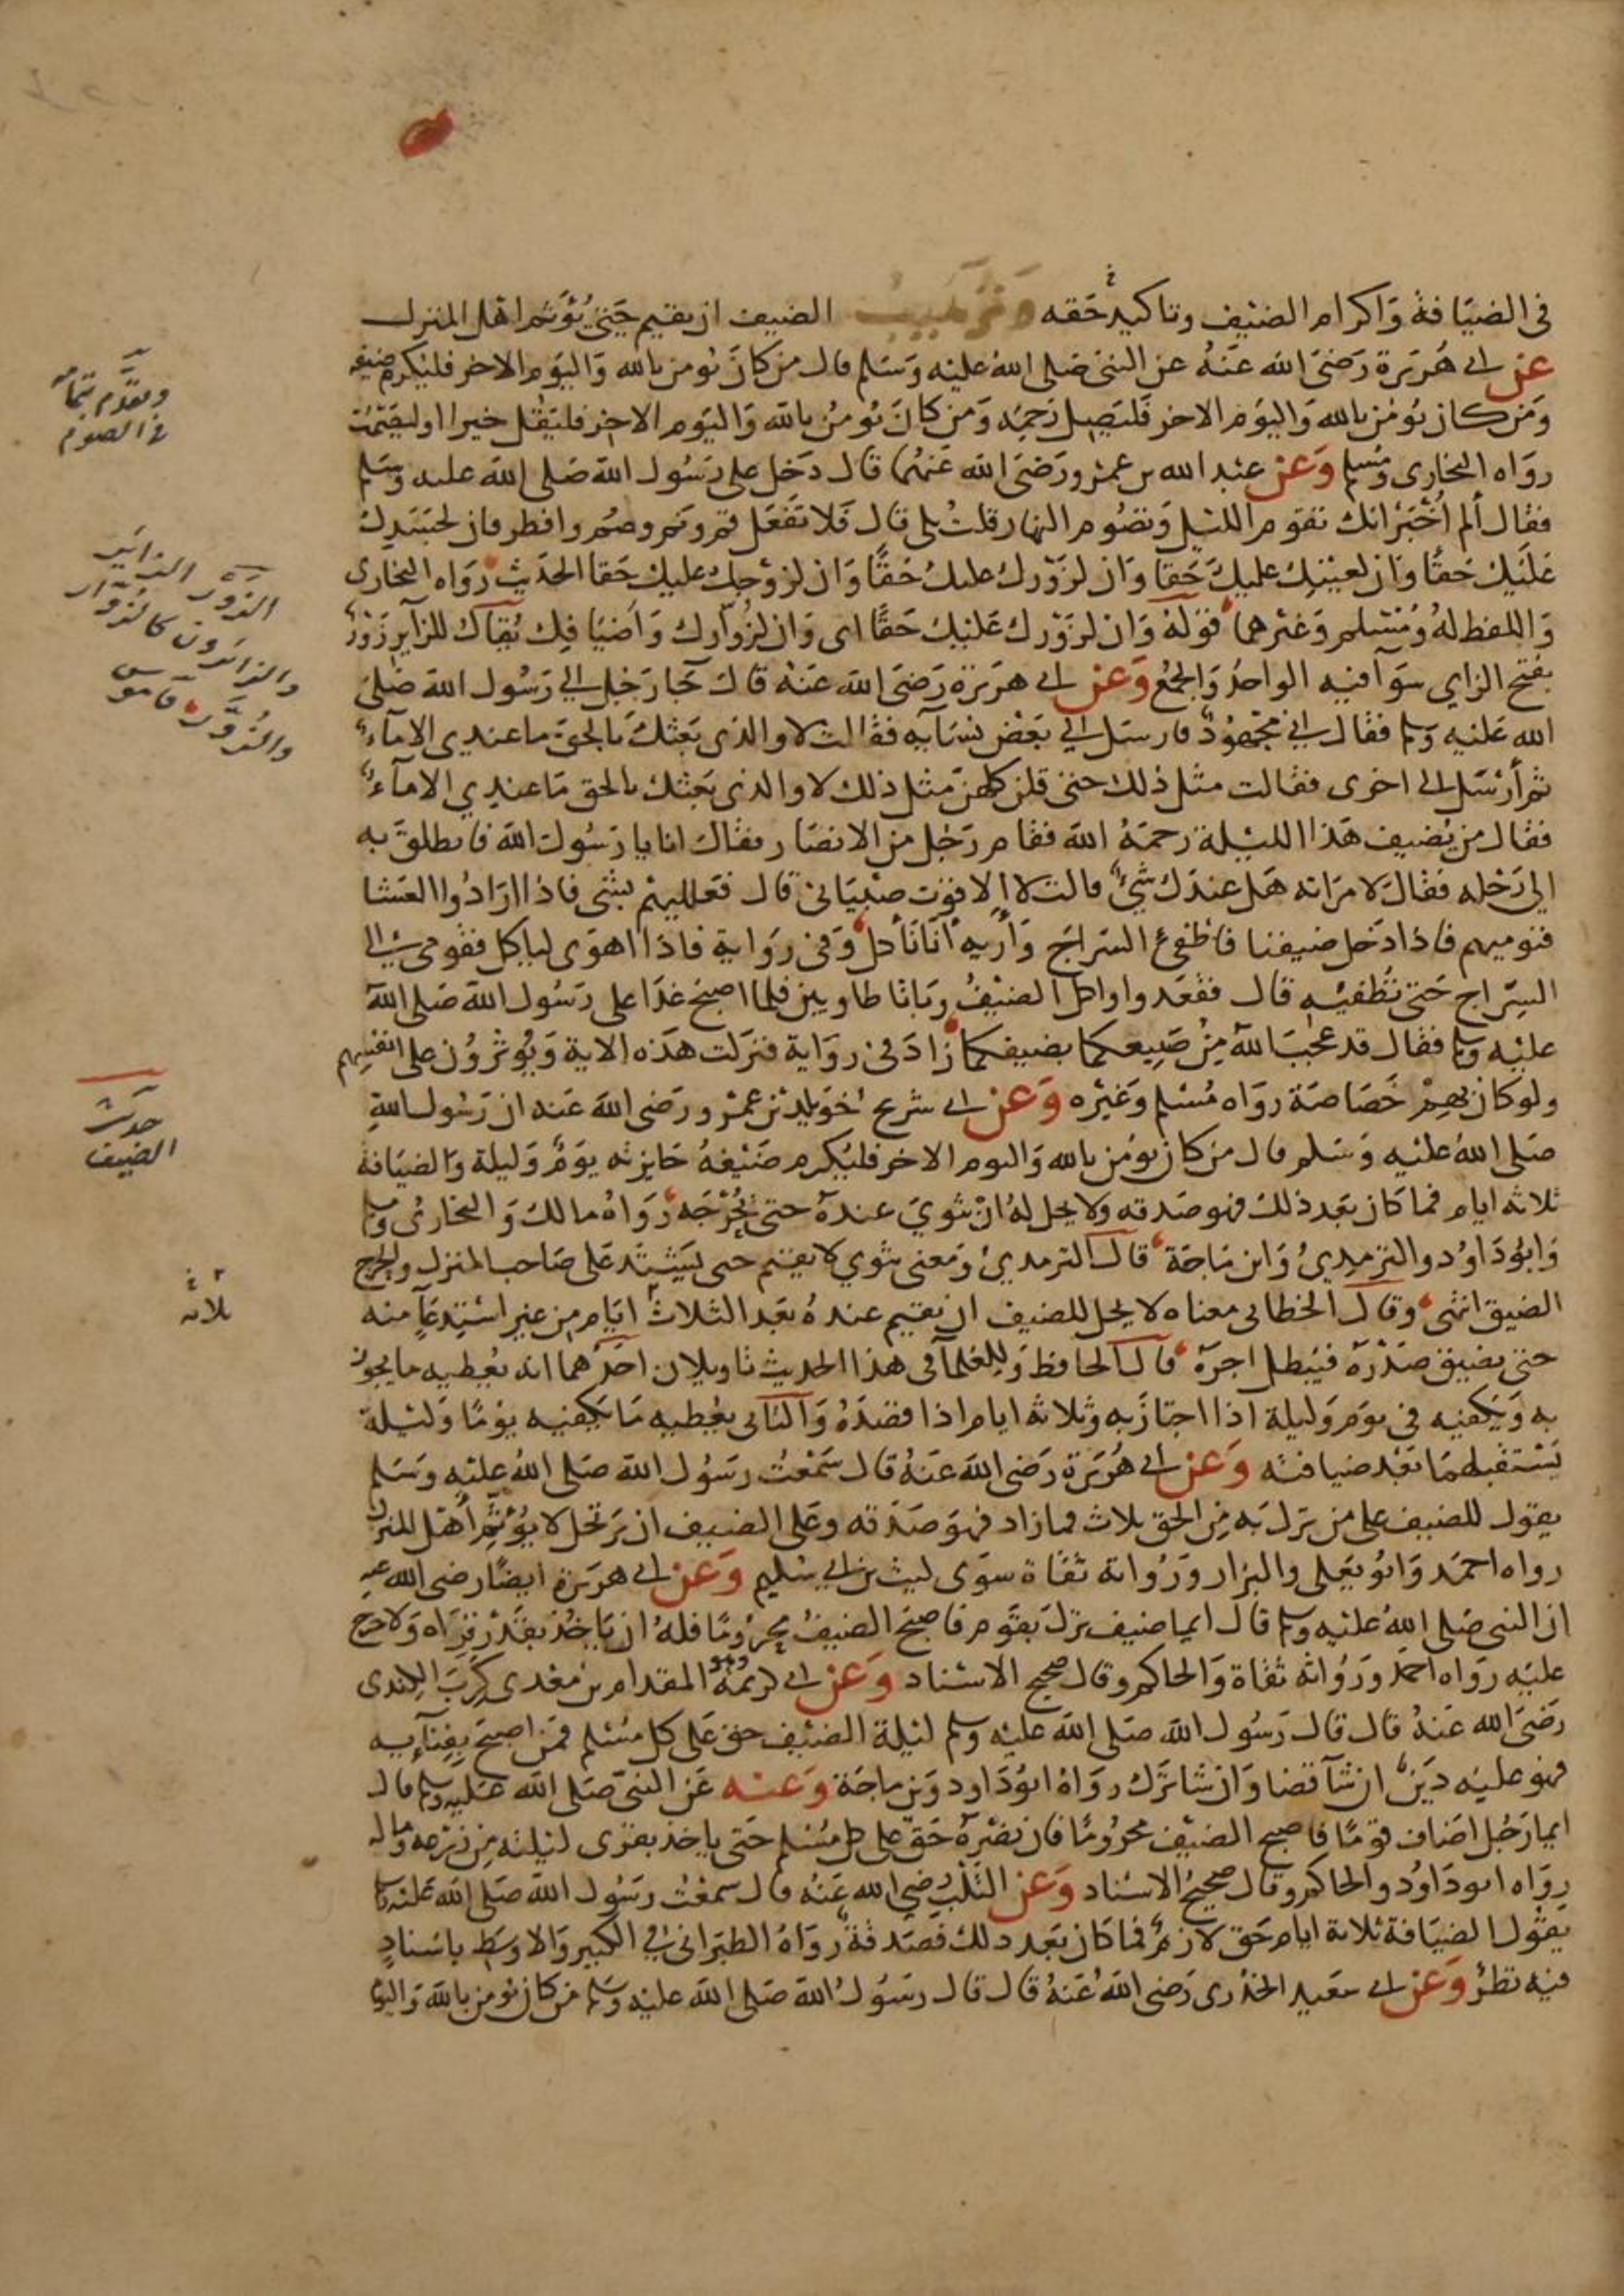 في الضيافة واكرام الضيف وتاكيد حقه وترهيب الضيف ان يقيم حتى يؤثم اهل المنزل
عن ابي هريرة رضي الله عنه عن النبي صلى الله عليه وسلم قال من كان يومن بالله واليوم الاخر فليكرم ضيفه
ومن كان يومن بالله واليوم الاخر فليصل رحمه ومن كان يومن بالله واليوم الاخر فليقل خيرا او ليصمت
رواه البخاري ومسلم وعن عبد الله بن عمرو رضي الله عنهما قال دخل علي رسول الله صلى الله عليه وسلم
فقال ألم اخبر انك تقوم الليل وتصوم النهار قلت بلى قال فلا تفعل قم ونم وصم وافطر فان لجسدك
عليك حقا وان لعينك عليك حقا وان لزورك عليك حقا وان لزوجك عليك حقا الحديث رواه البخاري
واللفظ له ومسلم وغيرهما قوله وان لزورك عليك حقا اى وان لزوارك واضيافك يقال للزآير زور
بفتح الزاي سوآ فيه الواحد والجمع وعن ابي هريرة رضي الله عنه قال جآ رجل الي رسول الله صلى
الله عليه وسلم فقال اني مجهود فارسل الي بعض نسآيه فقالت لا والذي بعثك بالحق ما عندي الا مآء
ثم أرسل الى اخرى فقالت مثل ذلك حتى قلن كلهن مثل ذلك لا والذي بعثك بالحق ما عندي الا مآء
فقال من يضيف هذا الليلة رحمه الله فقام رجل من الانصار فقال انا يا رسول الله فانطلق به
الي رحله فقال لامراته هل عندك شئ قالت لا الا قوت صبياني قال فعلليهم بشى فاذا ارادوا العشا
فنوميهم فاذا دخل ضيفنا فاطفئ السراج وأريه أنا نأكل وفى رواية فاذا اهوى لياكل فقومى الى
السراج حتى تطفيه قال فقعدوا واكل الضيف وباتا طاويين فلما اصبح غدا على رسول الله صلى الله
عليه وسلم فقال قد عجب الله من صنيعكما بضيفكما زاد فى رواية فنزلت هذه الاية ويوثرون على انفسهم
ولو كان بهم خصاصة رواه مسلم وغيره وعن ابي شريح خويلد بن عمرو رضي الله عنه ان رسول الله
صلى الله عليه وسلم قال من كان يومن بالله واليوم الاخر فليكرم ضيفه جايزته يوم وليلة والضيافة
ثلاثه ايام فما كان بعد ذلك فهو صدقه ولا يحل له ان يثوي عنده حتى يحرجه رواه مالك والبخارى ومسلم
وابو داود والترمذي وابن ماجة قال الترمذي ومعنى يثوي لا يقيم حتى يشتد على صاحب المنزل والحرج
الضيق انتهى وقال الخطابي معناه لا يحل للضيف ان يقيم عنده بعد الثلاث ايام من غير استدعآ منه
حتى يضيق صدره فيبطل اجره قال الحافظ وللعلمآ فى هذا الحديث تاويلان احدهما انه يعطيه ما يجوز
به ويكفيه فى يوم وليلة اذا اجتاز به وثلاثه ايام اذا قصده والثانى يعطيه ما يكفيه يوما وليلة
يستقبلهما بعد ضيافته وعن ابي هريرة رضي الله عنه قال سمعت رسول الله صلى الله عليه وسلم
يقول للضيف على من نزل به من الحق ثلاث فما زاد فهو صدقه وعلى الضيف ان يرتحل لا يؤثم أهل المنزل
رواه احمد وابو يعلى والبزار ورواته ثقاة سوى ليث بن ابي سليم وعن ابي هريرة ايضا رضي الله عنه
ان النبي صلى الله عليه وسلم قال ايما ضيف نزل بقوم فاصبح الضيف محروما فله ان ياخذ بقدر قراه ولا حرج
عليه رواه احمد ورواته ثقاة والحاكم وقال صحيح الاسناد وعن ابي كريمة وهو المقدام بن معدى كرب الكندى
رضي الله عنه قال قال رسول الله صلى الله عليه وسلم ليلة الضيف حق على كل مسلم فمن اصبح بفنآيه
فهو عليه دين ان شآ قضا وان شا ترك رواه ابو داود وبن ماجة وعنه عن النبي صلى الله عليه وسلم قال
ايما رجل اضاف قوما فاصبح الضيف محروما فان نصره حق على كل مسلم حتى ياخذ بقرى ليلته من زرعه وماله
رواه ابو داود والحاكم وقال صحيح الاسناد وعن التلب رضي الله عنه قال سمعت رسول الله صلى الله عليه وسلم
يقول الضيافة ثلاثة ايام حق لازم فما كان بعد ذلك فصدقة رواه الطبراني في الكبير والاوسط باسناد
فيه نظر وعن ابي سعيد الخدرى رضي الله عنه قال قال رسول الله صلى الله عليه وسلم من كان يومن بالله واليوم
وتقدم بتمامه
في الصوم
الزور الزائر
والزائرون كالزوار
والزور قاموس
حديث
الضيف
ثلاثه